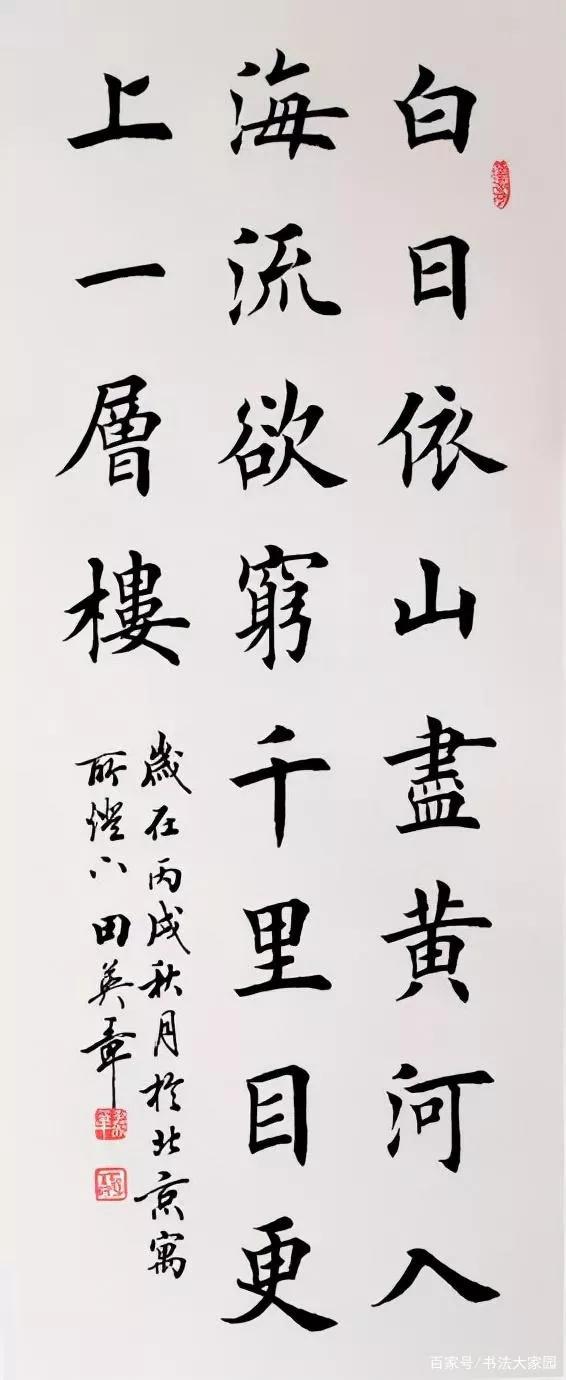 白日依山盡黄河入
海流欲窮千里目更
上一層樓
歲在丙戌秋月於北京寓
所燈下田英章
百家号/书法大家园